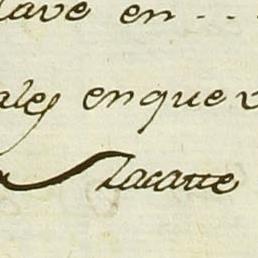 lave en . . .
ales enque v
Lacatte